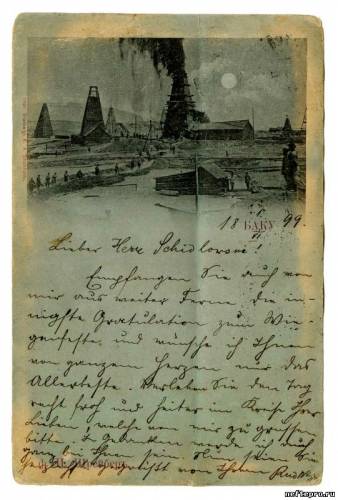 БАКУ
18 99
Lieber Herr Schidlowski!
Empfangen Sie auch von
mir aus weiter Ferne die in-
nigste Gratulation zum Wie-
genfeste und wünsche ich Ihnen
von ganzem Herzen nur das
Allerbeste. Verleben Sie den Tag
recht froh und heiter im Kreise Ihrer
Lieben, welche von mir zu grüssen
bitte. In Gedanken werde ich auch
ganz bei Ihnen sein. Nun seien Sie
gegrüsst von Ihrem
neftepru.ru